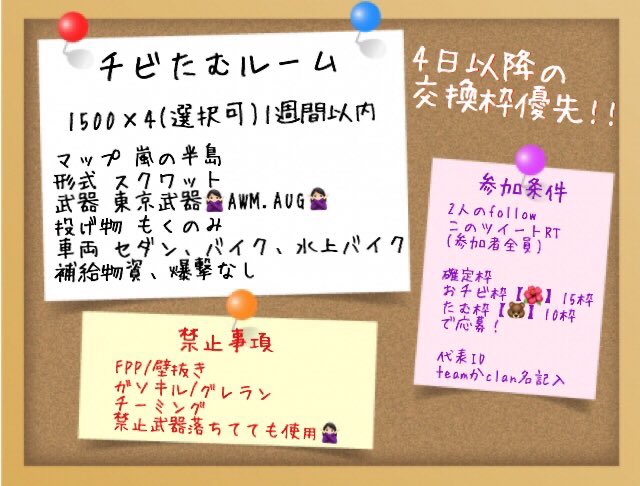 チビたむルーム
1500×4(選択可)1週間以内
マップ 嵐の半島
形式 スクワット
武器 東京武器🙅🏻‍♀️AWM.AUG🙅🏻‍♀️
投げ物 もくのみ
車両 セダン、バイク、水上バイク
補給物資、爆撃なし
4日以降の
交換枠優先!!
参加条件
2人のfollow
このツイートRT
(参加者全員)
確定枠
おチビ枠【🌺】15枠
たむ枠【🐻】10枠
で応募!
代表ID
teamかclan名記入
禁止事項
FPP/壁抜き
ガソキル/グレラン
チーミング
禁止武器落ちてても使用🙅🏻‍♀️